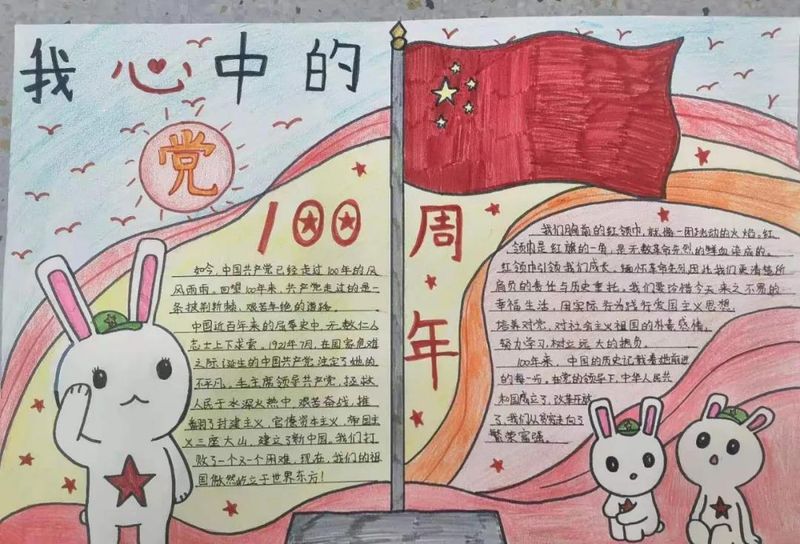 我心中的
党
100
周年
如今，中国共产党已经走过100年的风
风雨雨，回望100年来，共产党走过的是一
条披荆斩棘，艰苦卓绝的道路。
中国近百年来的屈辱史中，无数仁人
志士上下求索，1921年7月，在国家危难
之际诞生的中国共产党，注定了她的
不平凡，毛主席领导共产党，拯救
人民于水深火热中，艰苦奋战，推
翻了封建主义，官僚资本主义，帝国主
义三座大山，建立了新中国，我们打
败了一个又一个困难，现在，我们的祖
国傲然屹立于世界东方！
我们胸前的红领巾，就像一团跳动的火焰。红
领巾是红旗的一角，是无数革命先烈的鲜血染成的。
红领巾引领我们成长，缅怀革命先烈因此我们更清楚所
肩负的责任与历史重托，我们要珍惜今天来之不易的
幸福生活，用实际行为践行爱国主义思想，
培养对党，对社会主义祖国的朴素感情。
努力学习，树立远大的抱负。
100年来，中国的历史记载着她前进
的每一步，在党的领导下，中华人民共
和国成立了，改革开放
了，我们从贫穷走向了
繁荣富强。